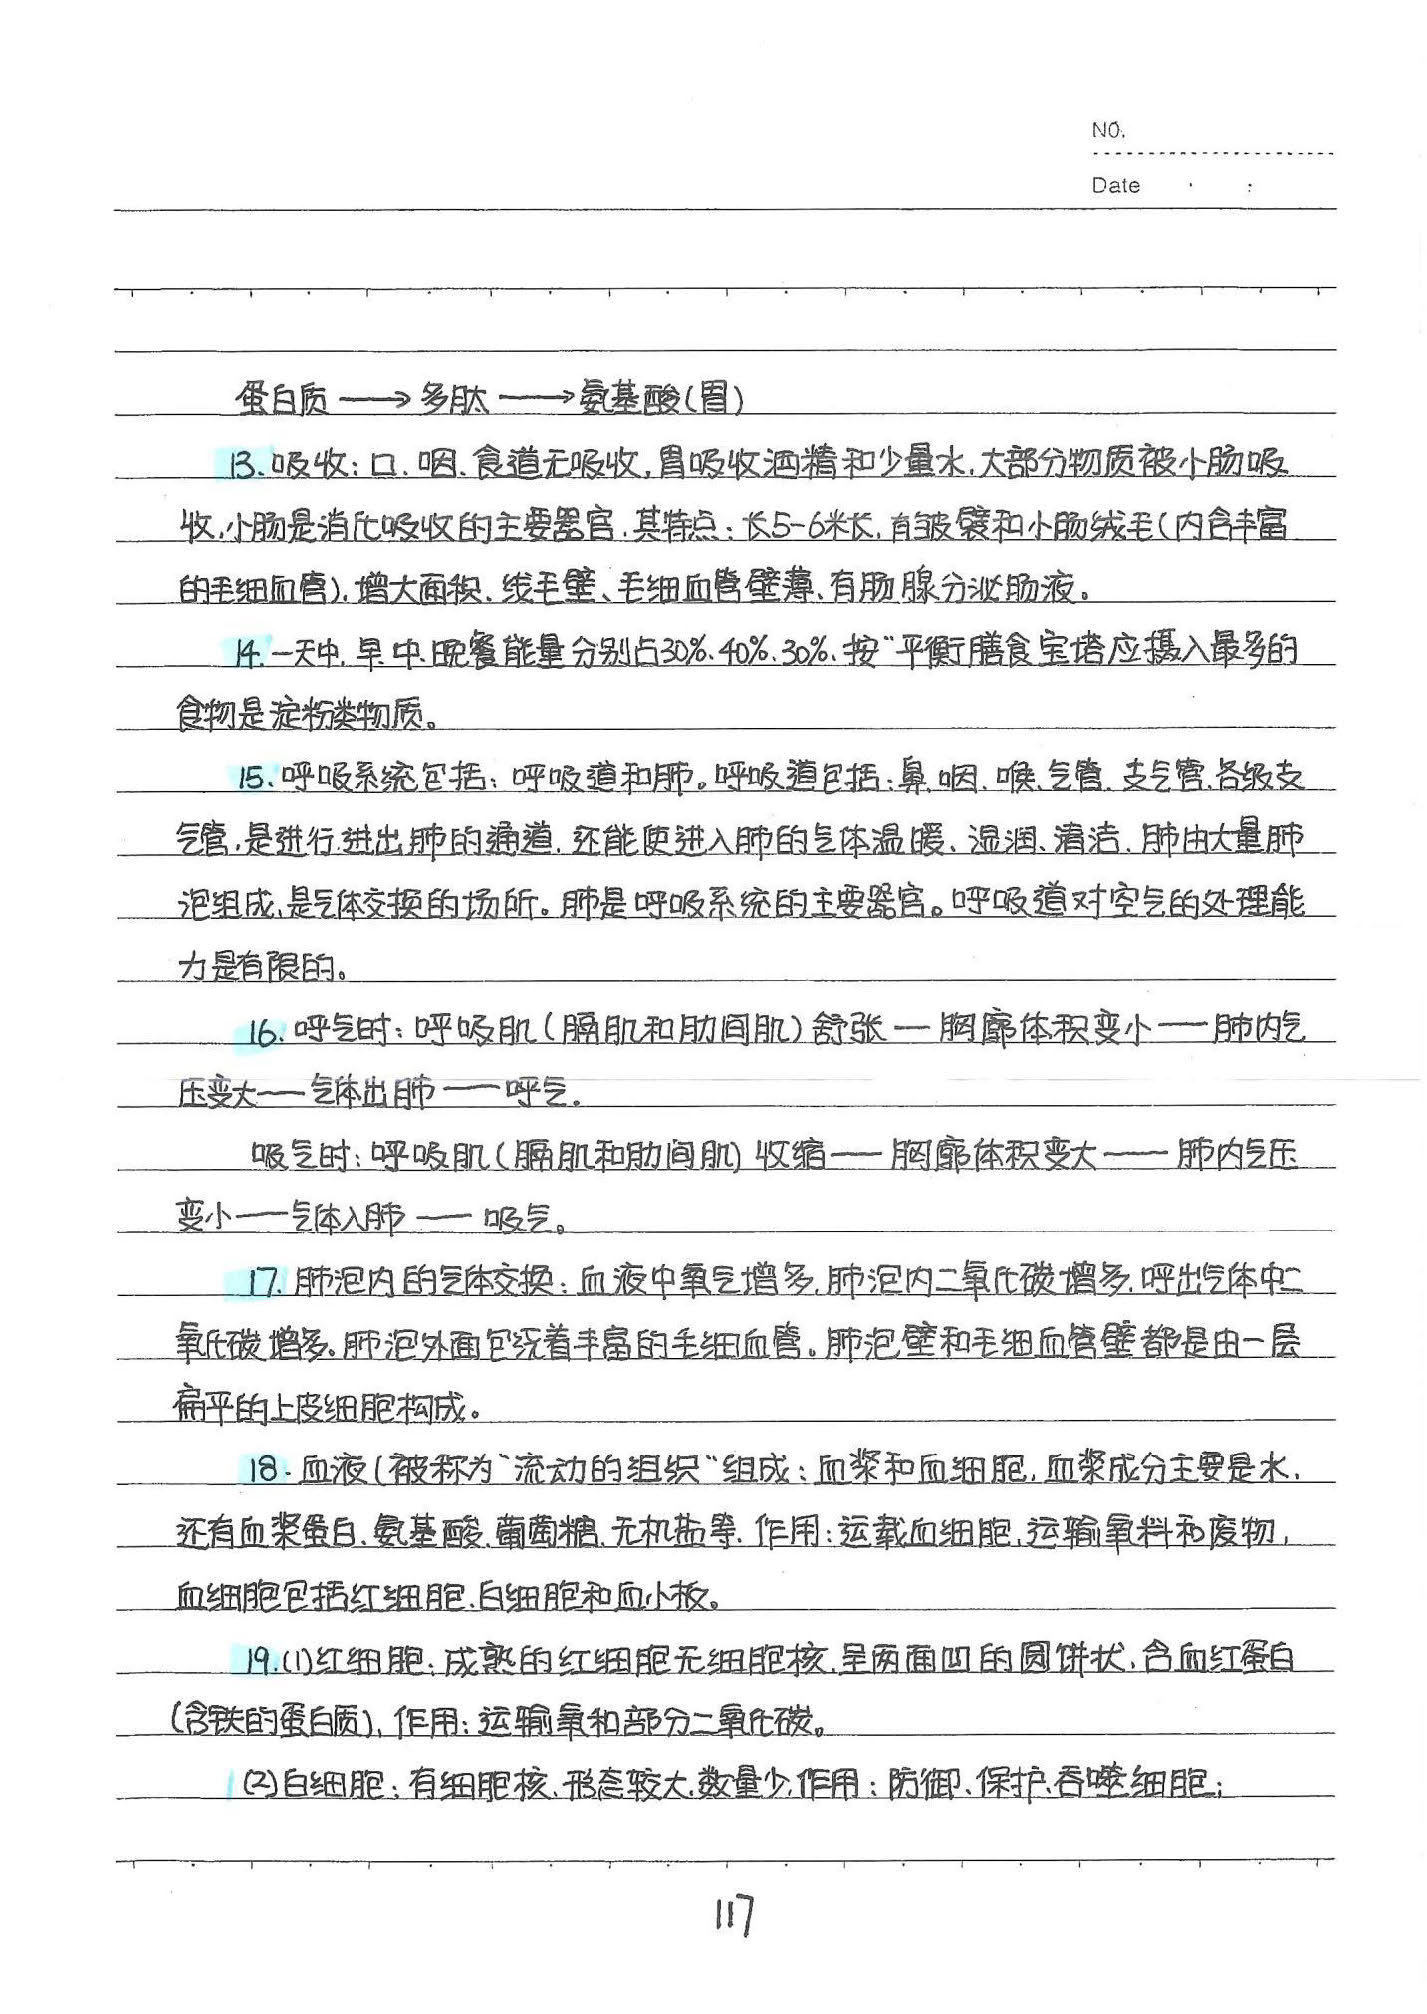 NO.
Date
蛋白质——→多肽——→氨基酸(胃)
13.吸收:口、咽、食道无吸收,胃吸收酒精和少量水,大部分物质被小肠吸
收,小肠是消化吸收的主要器官,其特点:长5-6米长,有皱襞和小肠绒毛(内含丰富
的毛细血管),增大面积、绒毛壁、毛细血管壁薄、有肠腺分泌肠液。
14.一天中,早、中、晚餐能量分别占30%、40%、30%、按“平衡膳食宝塔应摄入最多的
食物是淀粉类物质。
15.呼吸系统包括:呼吸道和肺。呼吸道包括:鼻、咽、喉、气管、支气管、各级支
气管,是进行进出肺的通道,还能使进入肺的气体温暖、湿润、清洁,肺由大量肺
泡组成,是气体交换的场所。肺是呼吸系统的主要器官。呼吸道对空气的处理能
力是有限的。
16.呼气时:呼吸肌(膈肌和肋间肌)舒张—胸廓体积变小——肺内气
压变大——气体出肺——呼气。
吸气时:呼吸肌(膈肌和肋间肌)收缩——胸廓体积变大——肺内气压
变小——气体入肺——吸气。
17.肺泡内的气体交换:血液中氧气增多,肺泡内二氧化碳增多,呼出气体中二
氧化碳增多。肺泡外面包绕着丰富的毛细血管。肺泡壁和毛细血管壁都是由一层
扁平的上皮细胞构成。
18.血液(被称为“流动的组织”组成:血浆和血细胞,血浆成分主要是水,
还有血浆蛋白、氨基酸、葡萄糖、无机盐等,作用:运载血细胞,运输氧料和废物,
血细胞包括红细胞、白细胞和血小板。
19.(1)红细胞:成熟的红细胞无细胞核,呈两面凹的圆饼状,含血红蛋白
(含铁的蛋白质),作用:运输氧和部分二氧化碳。
(2)白细胞:有细胞核,形态较大,数量少,作用:防御、保护、吞噬细胞;
117